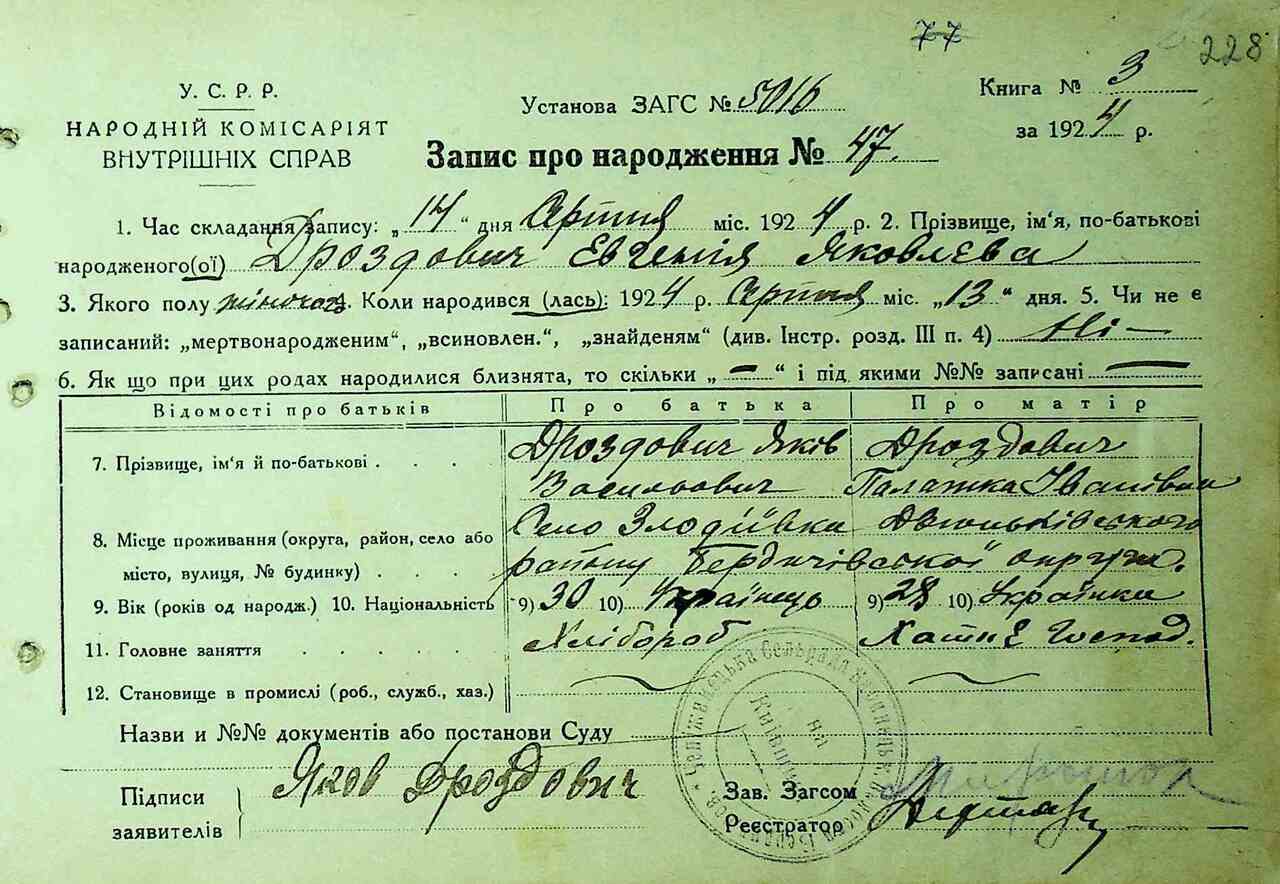 77
228
У. С. Р. Р.
НАРОДНІЙ КОМІСАРІЯТ
ВНУТРІШНІХ СПРАВ
Установа ЗАГС № 5016
Книга № 3
за 1924 р.
Запис про народження № 47.
1. Час складання запису: „14“ дня Серпня міс. 1924 р. 2. Прізвище, ім'я, по-батькові
народженого(ої) Дроздович Евгенія Яковлєва
3. Якого полу жіночої. Коли народився (лась): 1924 р. Серпня міс. „13“ дня. 5. Чи не є
записаний: „мертвонародженим“, „всиновлен.“, „знайденям“ (див. Інстр. розд. III п. 4) Ні —
6. Як що при цих родах народилися близнята, то скільки „—“ і під якими №№ записані —
Відомості про батьків Про батька Про матір
7. Прізвище, ім'я й по-батькові . . . . Дроздович Яків Дроздович
Васильович Палажка Іванівна
8. Місце проживання (округа, район, село або Село Злодіївка
місто, вулиця, № будинку) . . . . району Бердичівської округи.
9. Вік (років од народж.) 10. Національність 9) 30 10) Українець 9) 28 10) Українка
11. Головне заняття . . . . . Хлібороб Хатнє Господ.
12. Становище в промислі (роб., служб., хаз.)
Назви и №№ документів або постанови Суду
Підписи
заявителів
Яков Дроздович
Зав. Загсом
Реєстратор
Сельрада